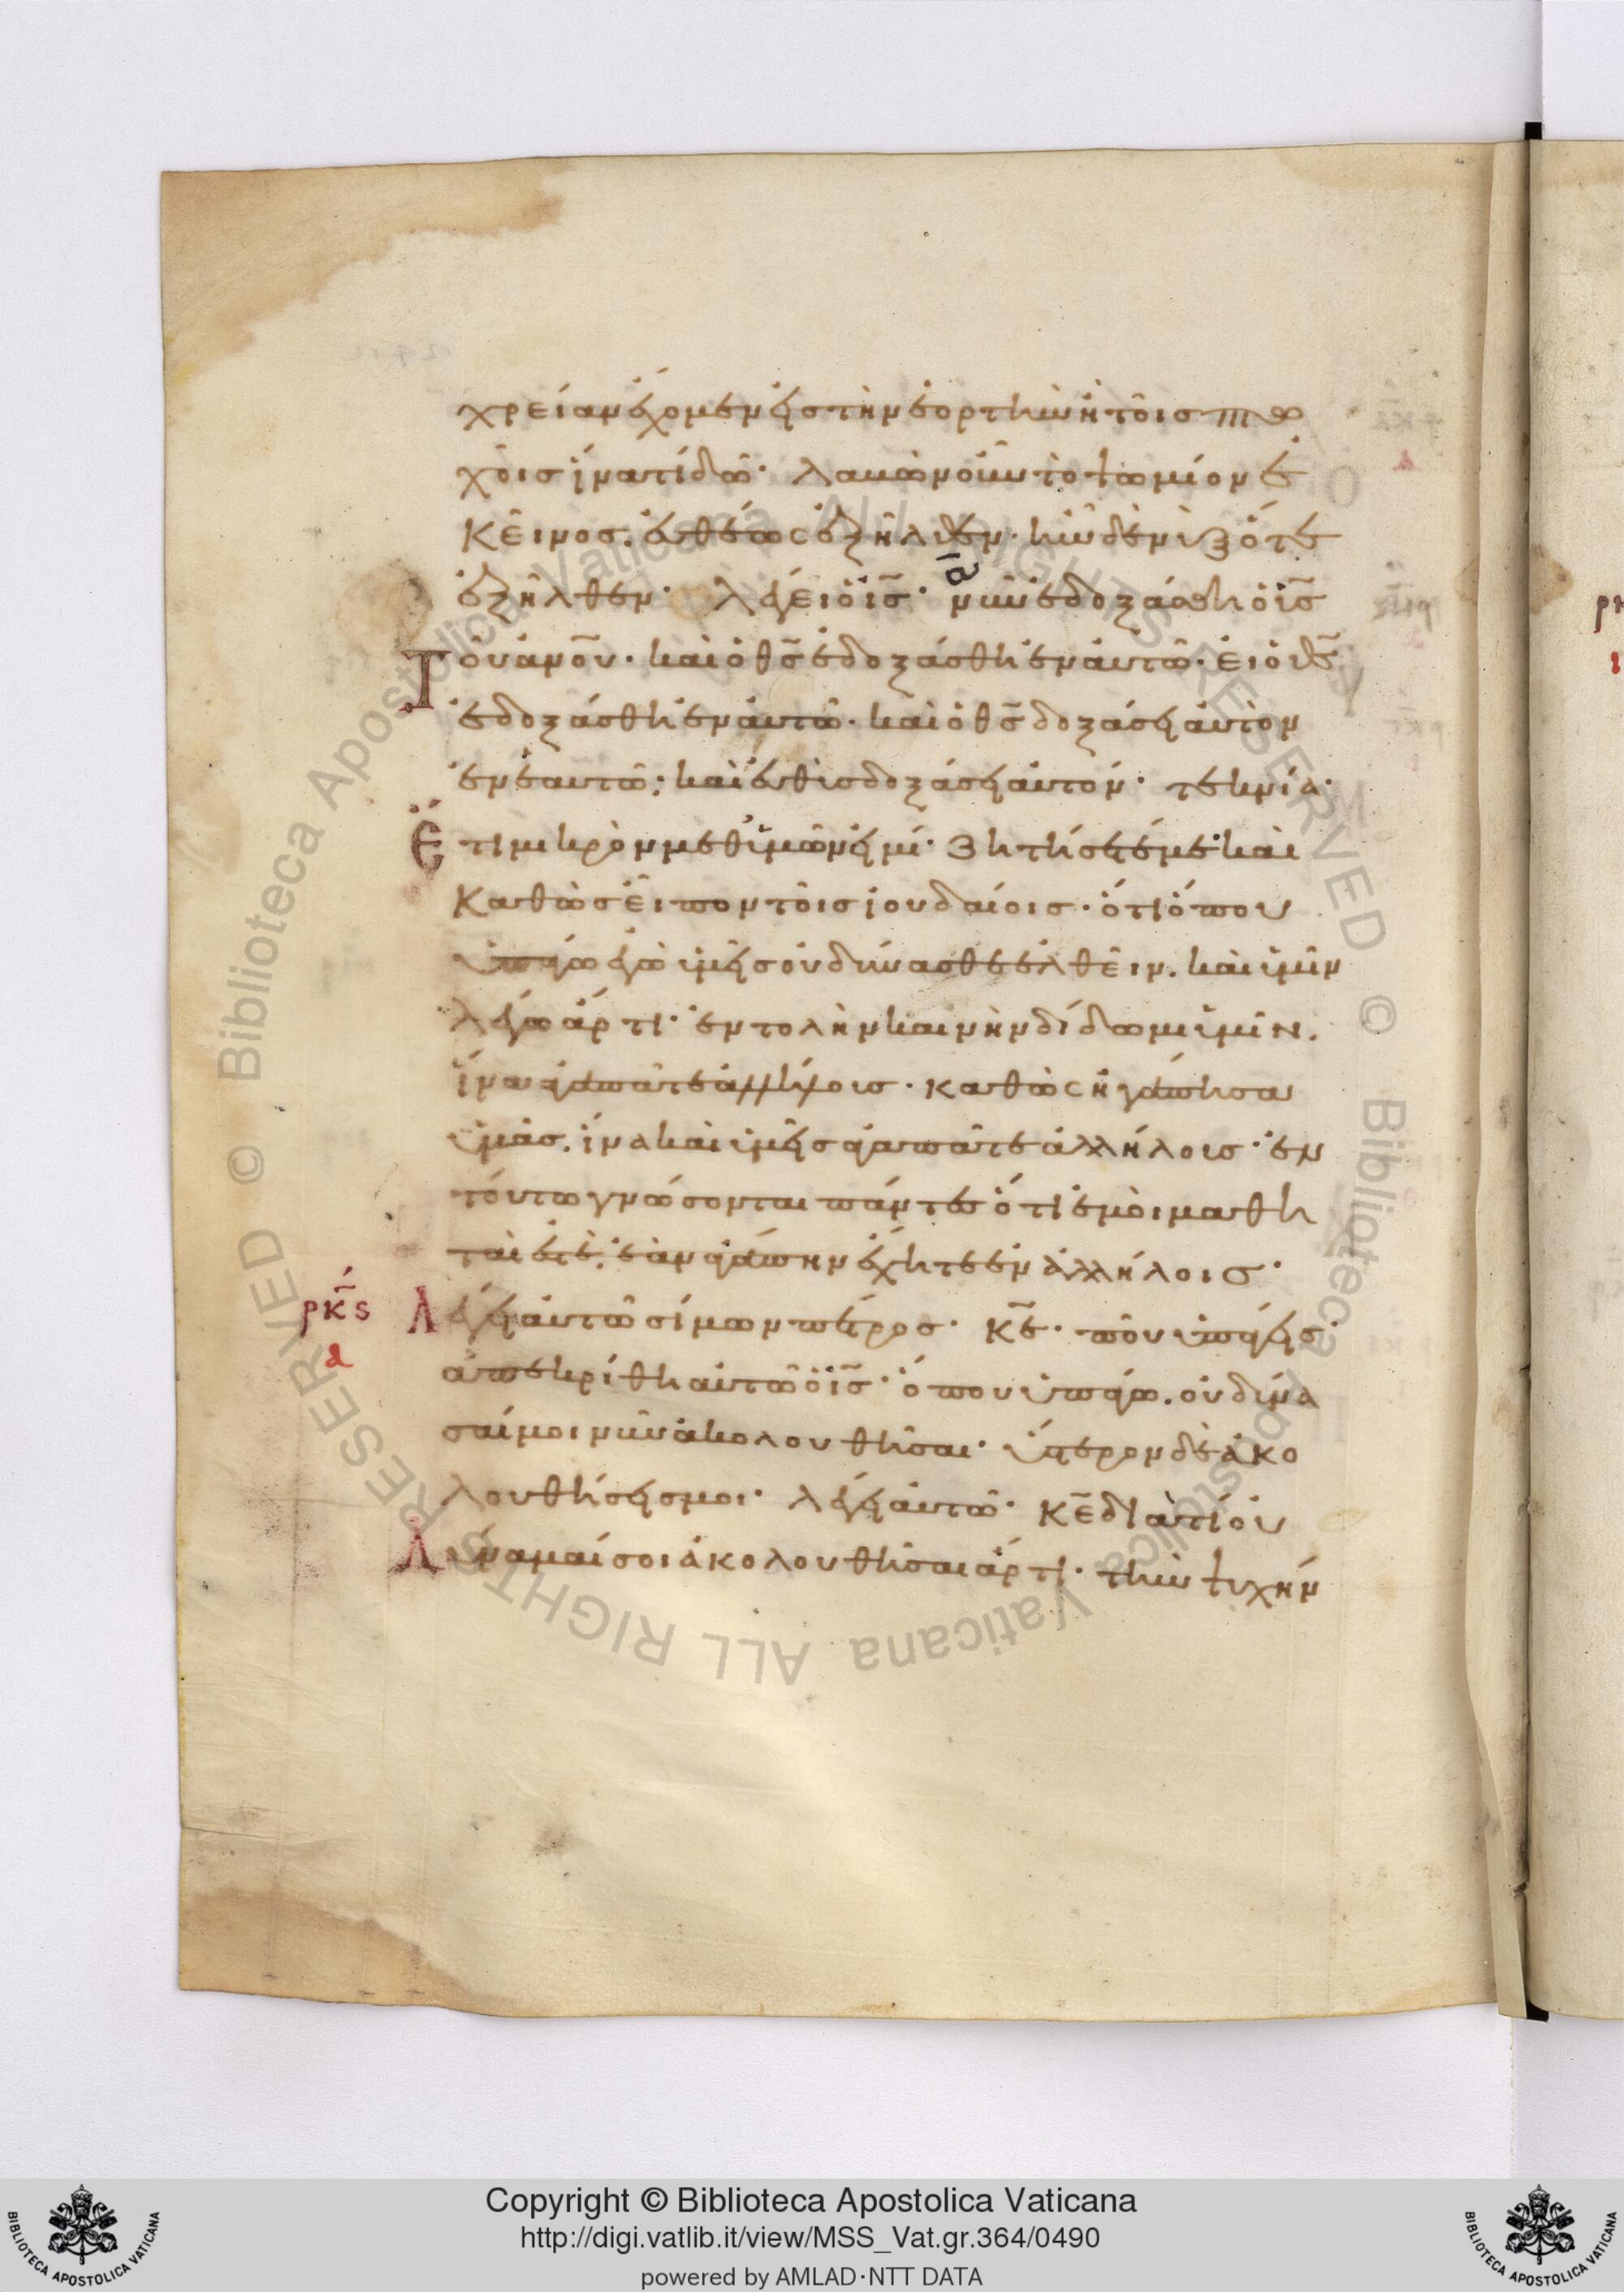 χρείαν ἔχομεν εἰς τὴν ἑορτὴν ἢ τοῖς πτω
χοῖς ἵνα τί δῶ· λαβὼν οὖν τὸ ψωμίον ἐ
κεῖνος. εὐθέως ἐξῆλθεν· ἦν δὲ νὺξ ὅτε
ἐξῆλθεν· λέγει ὁ ἰ̅ς̅· νῦν ἐδοξάσθη ὁ ὑ̅ς̅
τοῦ ἀν̅ο̅υ̅· καὶ ὁ θ̅ς̅ ἐδοξάσθη ἐν αὐτῶ· εἰ ὁ θ̅ς̅
ἐδοξάσθη ἐν αὐτῶ· καὶ ὁ θ̅ς̅ δοξάσει αὐτὸν
ἐν ἑαυτῶ· καὶ εὐθὺς δοξάσει αὐτόν· τεκνία·
ἔτι μικρὸν μεθ' ὑμῶν εἰμί· ζητήσετέ με· καὶ
καθὼς εἶπον τοῖς ἰουδαίοις· ὅτι ὅπου
ὑπάγω ἐγὼ ὑμεῖς οὐ δύνασθε ἐλθεῖν. καὶ ὑμῖν
λέγω ἄρτι· ἐντολὴν καινὴν δίδωμι ὑμῖν.
ἵνα ἀγαπᾶτε ἀλλήλους· καθὼς ἠγάπησα
ὑμᾶς. ἵνα καὶ ὑμεῖς ἀγαπᾶτε ἀλλήλους· ἐν
τούτω γνώσονται πάντες ὅτι ἐμοὶ μαθη
ταί ἐστέ. ἐὰν ἀγάπην ἔχητε ἐν ἀλλήλοις·
ρκς λέγει αὐτῶ σίμων πέτρος· κ̅ε̅· ποῦ ὑπάγεις·
α ἀπεκρίθη αὐτῶ ὁ ἰ̅ς̅· ὅπου ὑπάγω. οὐ δύνα
σαί μοι νῦν ἀκολουθῆσαι· ὕστερον δὲ ἀκο
λουθήσεις μοι· λέγει αὐτῶ· κ̅ε̅ διατί οὐ
δύναμαί σοι ἀκολουθῆσαι ἄρτι· τὴν ψυχήν
Copyright © Biblioteca Apostolica Vaticana
http://digi.vatlib.it/view/MSS_Vat.gr.364/0490
powered by AMLAD·NTT DATA
BIBLIOTECA APOSTOLICA VATICANA
BIBLIOTECA APOSTOLICA VATICANA